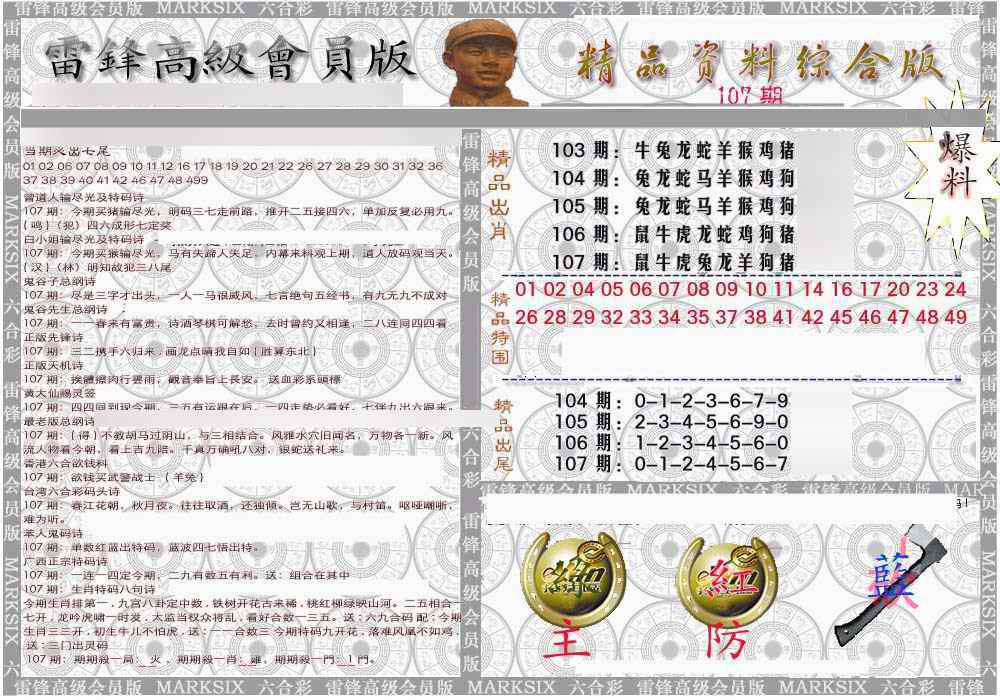 雷锋高级会员版 MARKSIX 六合彩 雷锋高级会员版 MARKSIX 六合彩 雷锋高级会员版 MARKSIX 六合彩 雷锋
雷鋒高級會員版
精品资料综合版
107 期
爆料
01 02 06 07 08 09 10 11 12 16 17 18 19 20 21 22 26 27 28 29 30 31 32 36
37 38 39 40 41 42 46 47 48 499
曾道人输尽光及特码诗
107 期：今期买猪输尽光，明码三七走前路，推开二五接四六，单加反复必用九。
{ 鸣 }（犯）四六成形七定奖
白小姐输尽光及特码诗
107 期：今期买猴输尽光，马有失蹄人失足，内幕来料观上期，道人放码观当天。
{ 汉 }（林）明知故犯三八尾
鬼谷子总纲诗
107 期：尽是三字才出头，一人一马很威风，七言绝句五经书，有九无九不成对
鬼谷先生总纲诗
107 期：一一春来有富贵，诗酒琴棋可解愁，去时曾约又相逢，二八连同四四看
正版先锋诗
107 期：三二携手六归来，画龙点睛我自如 { 胜算东北 }
正版天机诗
107 期：挨體擦肉行雲雨，觀音奉旨上長安。 送血彩系頭標
黄大仙赐灵签
107 期：四四同到现今期，三五有运跟在后，一四走势必看好，七伴九出六跟来。
最老版总纲诗
107 期：{ 得 } 不教胡马过阴山，与三相结合。风雅水穴旧闻名，万物各一新。风
流人物看今朝，看上吉九陪。千真万确吼八对，银蛇送礼来。
香港六合欲钱料
107 期：欲钱买武警战士 { 羊兔 }
台湾六合彩码头诗
107 期：春江花朝，秋月夜。往往取酒，还独倾。岂无山歌，与村笛。呕哑嘲哳，
难为听。
苯人鬼码诗
107 期：单数红蓝出特码，蓝波四七悟出特。
广西正宗特码诗
107 期：一连一四定今期，二九有数五有利。送：组合在其中
107 期：生肖特码八句诗
今期生肖排第一．九宫八卦定中数．铁树开花古来稀．桃红柳绿映山河。二五相合
七开．龙吟虎啸一时发．太监当权众将乱．看好合数一三五。送：六九合码 配：今期
生肖三三开．初生牛儿不怕虎．送：一一合数三 今期特码九开花．落难凤凰不如鸡．
送：三门出灵码
107 期：期期殺一局：火，期期殺一肖：雞，期期殺一門：1 門。
精品出肖
103 期：牛兔龙蛇羊猴鸡猪
104 期：兔龙蛇马羊猴鸡狗
105 期：兔龙蛇马羊猴鸡狗
106 期：鼠牛虎龙蛇鸡狗猪
107 期：鼠牛虎兔龙羊狗猪
精品特围
01 02 04 05 06 07 08 09 10 11 14 16 17 20 23 24
26 28 29 32 33 34 35 37 38 41 42 45 46 47 48 49
精品出尾
104 期：0-1-2-3-6-7-9
105 期：2-3-4-5-6-9-0
106 期：1-2-3-4-5-6-0
107 期：0-1-2-4-5-6-7
主
紅
防
藍
雷锋高级会员版 MARKSIX 六合彩 雷锋高级会员版 MARKSIX 六合彩 雷锋高级会员版 MARKSIX 六合彩 雷锋